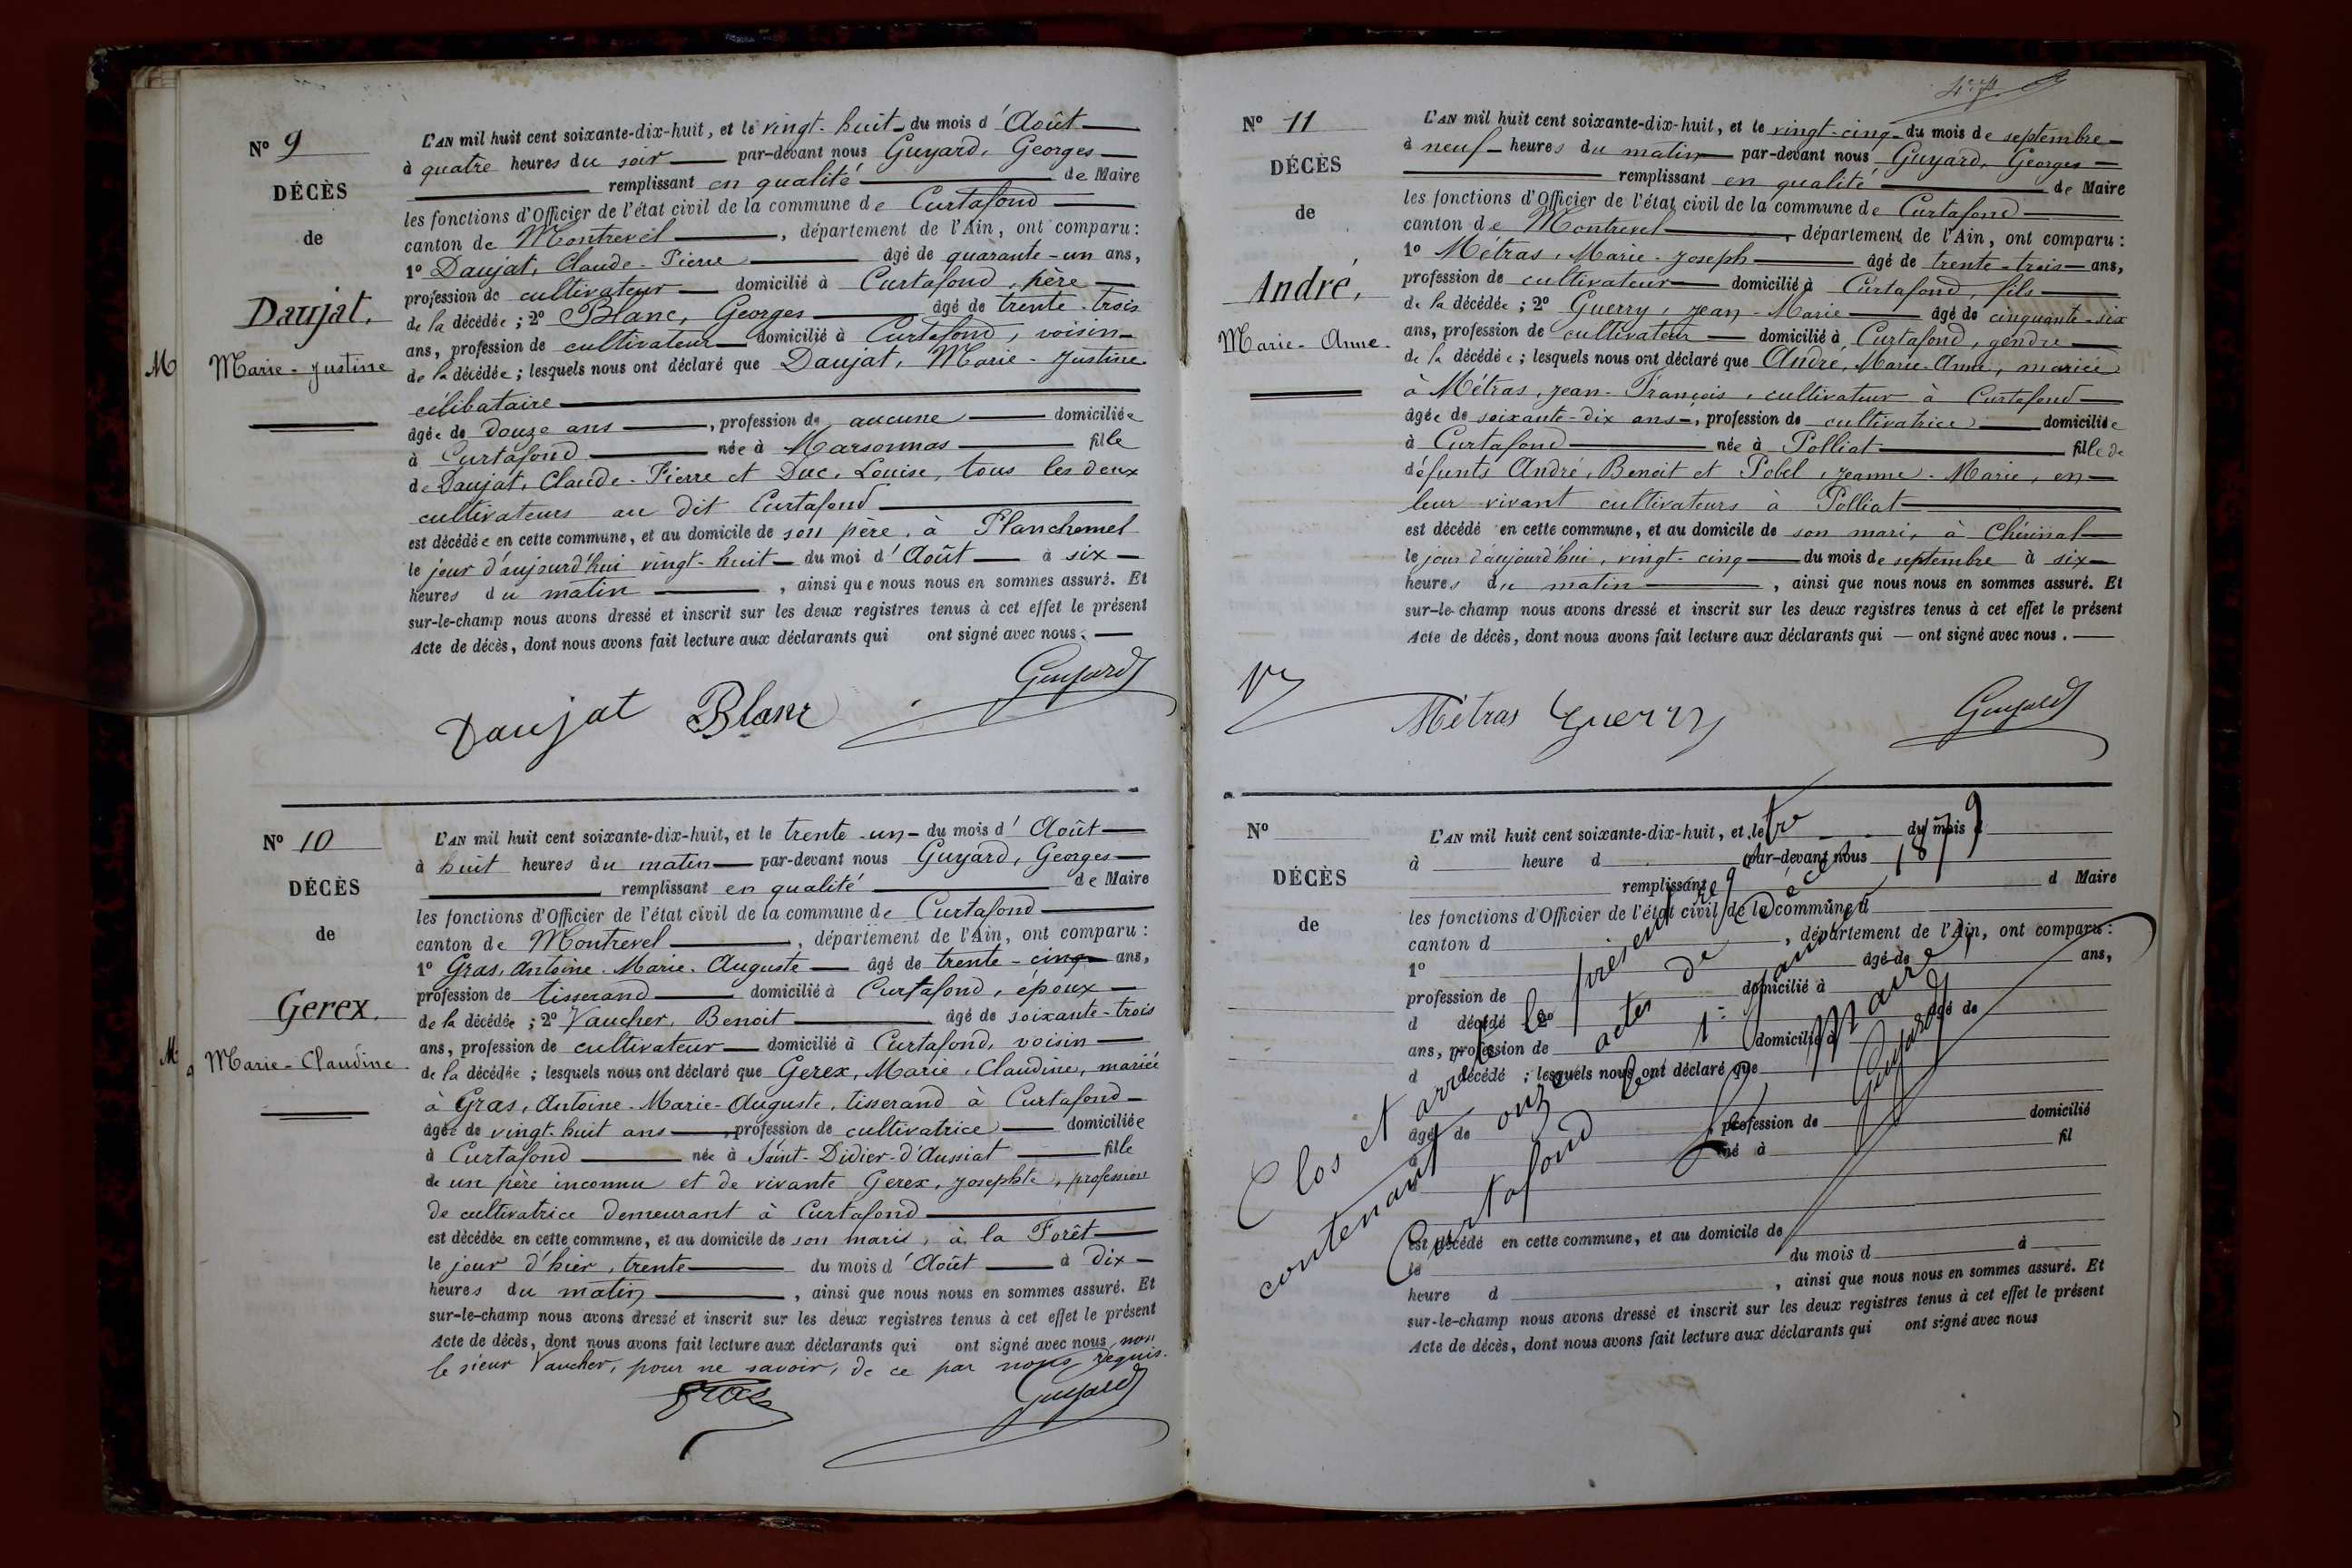 Nº 9
DÉCÈS
de
Daujat,
M Marie-Justine
L'AN mil huit cent soixante-dix-huit, et le vingt-huit du mois d'Août
à quatre heures du soir par-devant nous Guyard, Georges
remplissant en qualité de Maire
les fonctions d'Officier de l'état civil de la commune de Curtafond
canton de Montrevel, département de l'Ain, ont comparu :
1º Daujat, Claude-Pierre âgé de quarante-un ans,
profession de cultivateur domicilié à Curtafond, père
de la décédée ; 2º Blanc, Georges âgé de trente-trois
ans, profession de cultivateur domicilié à Curtafond, voisin
de la décédée ; lesquels nous ont déclaré que Daujat, Marie-Justine
célibataire
âgée de douze ans, profession de aucune domiciliée
à Curtafond née à Marsonnas fille
de Daujat, Claude-Pierre et Duc, Louise, tous les deux
cultivateurs au dit Curtafond
est décédée en cette commune, et au domicile de son père, à Planchemel
le jour d'aujourd'hui vingt-huit du moi d'Août à six
heures du matin, ainsi que nous nous en sommes assuré. Et
sur-le-champ nous avons dressé et inscrit sur les deux registres tenus à cet effet le présent
Acte de décès, dont nous avons fait lecture aux déclarants qui ont signé avec nous.
Daujat Blanc Guyard
Nº 10
DÉCÈS
de
Gerex.
M Marie-Claudine
L'AN mil huit cent soixante-dix-huit, et le trente-un du mois d'Août
à huit heures du matin par-devant nous Guyard, Georges
remplissant en qualité de Maire
les fonctions d'Officier de l'état civil de la commune de Curtafond
canton de Montrevel, département de l'Ain, ont comparu :
1º Gras, Antoine-Marie-Auguste âgé de trente-cinq ans,
profession de tisserand domicilié à Curtafond, époux
de la décédée ; 2º Vaucher, Benoit âgé de soixante-trois
ans, profession de cultivateur domicilié à Curtafond, voisin
de la décédée ; lesquels nous ont déclaré que Gerex, Marie-Claudine, mariée
à Gras, Antoine-Marie-Auguste, tisserand à Curtafond
âgée de vingt-huit ans, profession de cultivatrice domiciliée
à Curtafond née à Saint-Didier-d'Aussiat fille
de un père inconnu et de vivante Gerex, Josephte, profession
de cultivatrice demeurant à Curtafond
est décédée en cette commune, et au domicile de son mari, à la Forêt
le jour d'hier, trente du mois d'Août à dix
heures du matin, ainsi que nous nous en sommes assuré. Et
sur-le-champ nous avons dressé et inscrit sur les deux registres tenus à cet effet le présent
Acte de décès, dont nous avons fait lecture aux déclarants qui ont signé avec nous, non
le sieur Vaucher, pour ne savoir, de ce par nous requis.
Gras Guyard
Nº 11
DÉCÈS
de
André,
Marie-Anne
L'AN mil huit cent soixante-dix-huit, et le vingt-cinq du mois de septembre
à neuf heures du matin par-devant nous Guyard, Georges
remplissant en qualité de Maire
les fonctions d'Officier de l'état civil de la commune de Curtafond
canton de Montrevel, département de l'Ain, ont comparu :
1º Métras, Marie-Joseph âgé de trente-trois ans,
profession de cultivateur domicilié à Curtafond, fils
de la décédée ; 2º Guerry, Jean-Marie âgé de cinquante-six
ans, profession de cultivateur domicilié à Curtafond, gendre
de la décédée ; lesquels nous ont déclaré que André, Marie-Anne, mariée
à Métras, Jean-François, cultivateur à Curtafond
âgée de soixante-dix ans, profession de cultivatrice domiciliée
à Curtafond née à Polliat fille de
défunts André, Benoit et Pobel, Jeanne-Marie, en
leur vivant cultivateurs à Polliat
est décédé en cette commune, et au domicile de son mari, à Chérinal
le jour d'aujourd'hui, vingt-cinq du mois de septembre à six
heures du matin, ainsi que nous nous en sommes assuré. Et
sur-le-champ nous avons dressé et inscrit sur les deux registres tenus à cet effet le présent
Acte de décès, dont nous avons fait lecture aux déclarants qui ont signé avec nous.
Métras Guerry Guyard
Nº
DÉCÈS
de
L'AN mil huit cent soixante-dix-huit, et le du mois d
à heure d par-devant nous
remplissant d Maire
les fonctions d'Officier de l'état civil de la commune d
canton d, département de l'Ain, ont comparu :
1º âgé de ans,
profession de domicilié à
d décédé 2º âgé de
ans, profession de domicilié à
d décédé ; lesquels nous ont déclaré que
âgé de profession de domicilié
à né à fil
est décédé en cette commune, et au domicile de
le du mois d à
heure d, ainsi que nous nous en sommes assuré. Et
sur-le-champ nous avons dressé et inscrit sur les deux registres tenus à cet effet le présent
Acte de décès, dont nous avons fait lecture aux déclarants qui ont signé avec nous
Clos et arrêté le présent registre
contenant onze actes de décès
Curtafond le 1er janvier 1879
Le Maire,
Guyard